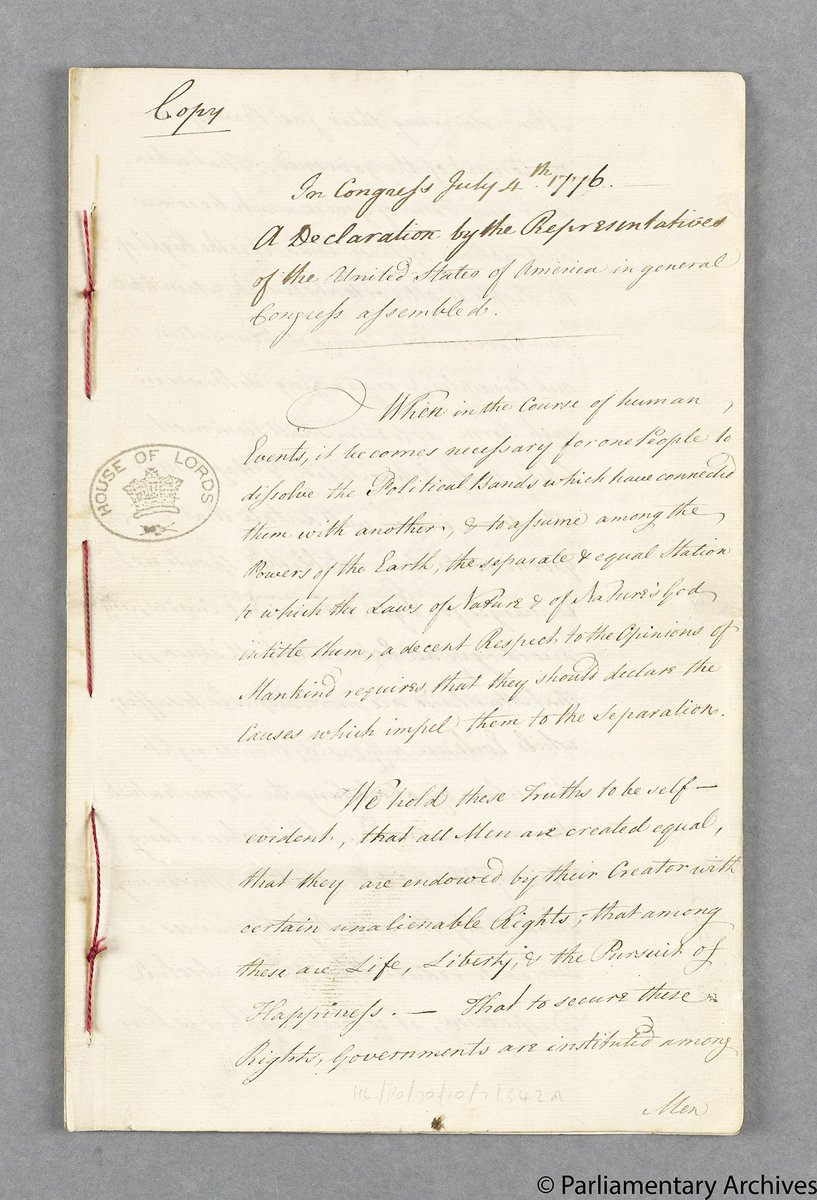 Copy
In Congress July 4th. 1776.
A Declaration by the Representatives
of the United States of America in general
Congress assembled.
When in the Course of human
Events, it becomes necessary for one People to
dissolve the Political Bands which have connected
them with another, & to assume among the
Powers of the Earth, the separate & equal Station
to which the Laws of Nature & of Nature's God
intitle them, a decent Respect to the Opinions of
Mankind requires that they should declare the
Causes which impel them to the Separation.
HOUSE OF LORDS
We hold these Truths to be self-
evident, that all Men are created equal,
that they are endowed by their Creator with
certain unalienable Rights; that among
these are Life, Liberty, & the Pursuit of
Happiness. — That to secure these
Rights, Governments are instituted among
Men
© Parliamentary Archives